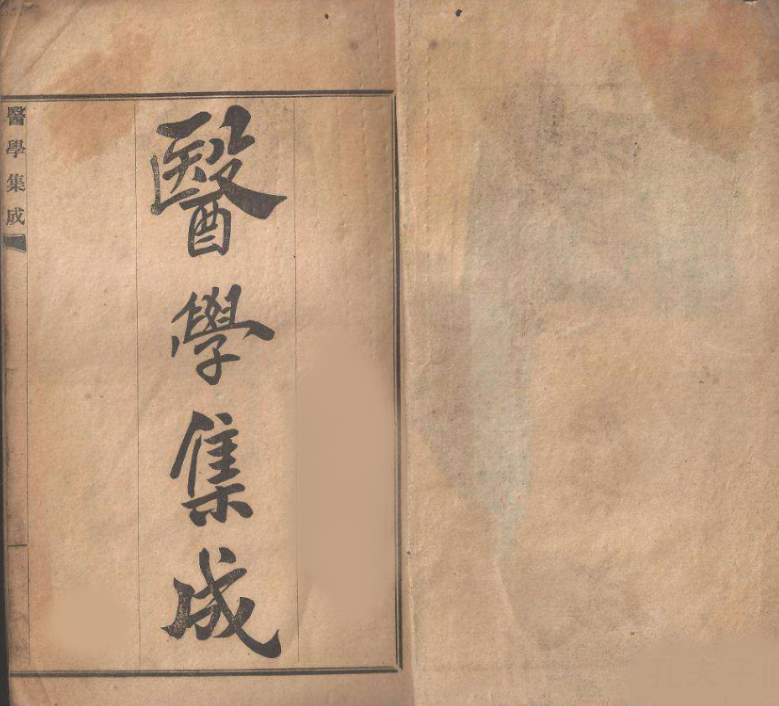 醫學集成
醫學集成